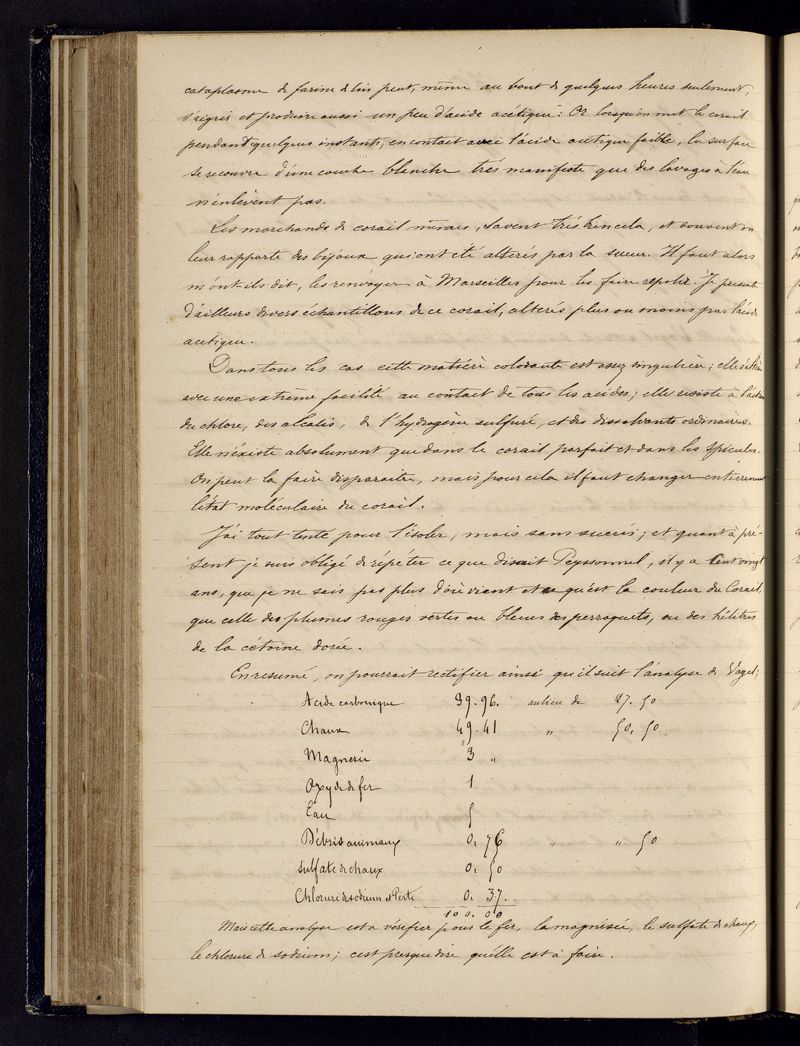 cataplasme de farine de lin peut, même au bout de quelques heures seulement,
s'aigrir et produire aussi un peu d'acide acétique. Or lorsqu'on met le corail
pendant quelques instants, en contact avec l'acide acétique faible, la surface
se recouvre d'une couche blanche très manifeste que des lavages à l'eau
n'enlèvent pas.
Les marchands de corail savent très bien cela, et souvent on
leur rapporte des bijoux qui ont été altérés par la sueur. Il faut alors
m'ont-ils dit, les renvoyer à Marseilles pour les faire repolir. Je présente
d'ailleurs divers échantillons de ce corail, altérés plus ou moins par l'acide
acetique.
Dans tous les cas cette matière colorante est assez singulière; elle s'altère
avec une extrême facilité au contact de tous les acides; elle résiste à l'action
du chlore, des alcalis, de l'hydrogène sulfuré, et des dissolvants ordinaires.
Elle n'existe absolument que dans le corail parfait et dans les spicules.
On peut la faire disparaitre, mais pour cela il faut changer entièrement
l'état moléculaire du corail.
J'ai tout tenté pour l'isoler, mais sans succès; et quant à pré-
sent je suis obligé de répéter ce que disait Peyssonnel, il y a cent vingt
ans, que je ne sais pas plus d'où vient et ce qu'est la couleur du Corail,
que celle des plumes rouges vertes ou bleues des perroquets, ou des hélitres
de la cétoine dorée.
En resumé, on pourrait rectifier ainsi qu'il suit l'analyse de Vogel;
Acide carbonique 39.96. au lieu de 27.50
Chaux 49.41 " 50.50.
Magnesie 3 "
Oxyde de fer 1
Eau 5
Débris animaux 0.76 " " 50
sulfate de chaux 0.50
Chlorure de sodium et Perte 0.37.
100.00
Mais cette analyse est a vérifier pour le fer, la magnésie, le sulfate de chaux,
le chlorure de sodium; c'est presque dire qu'elle est à faire.